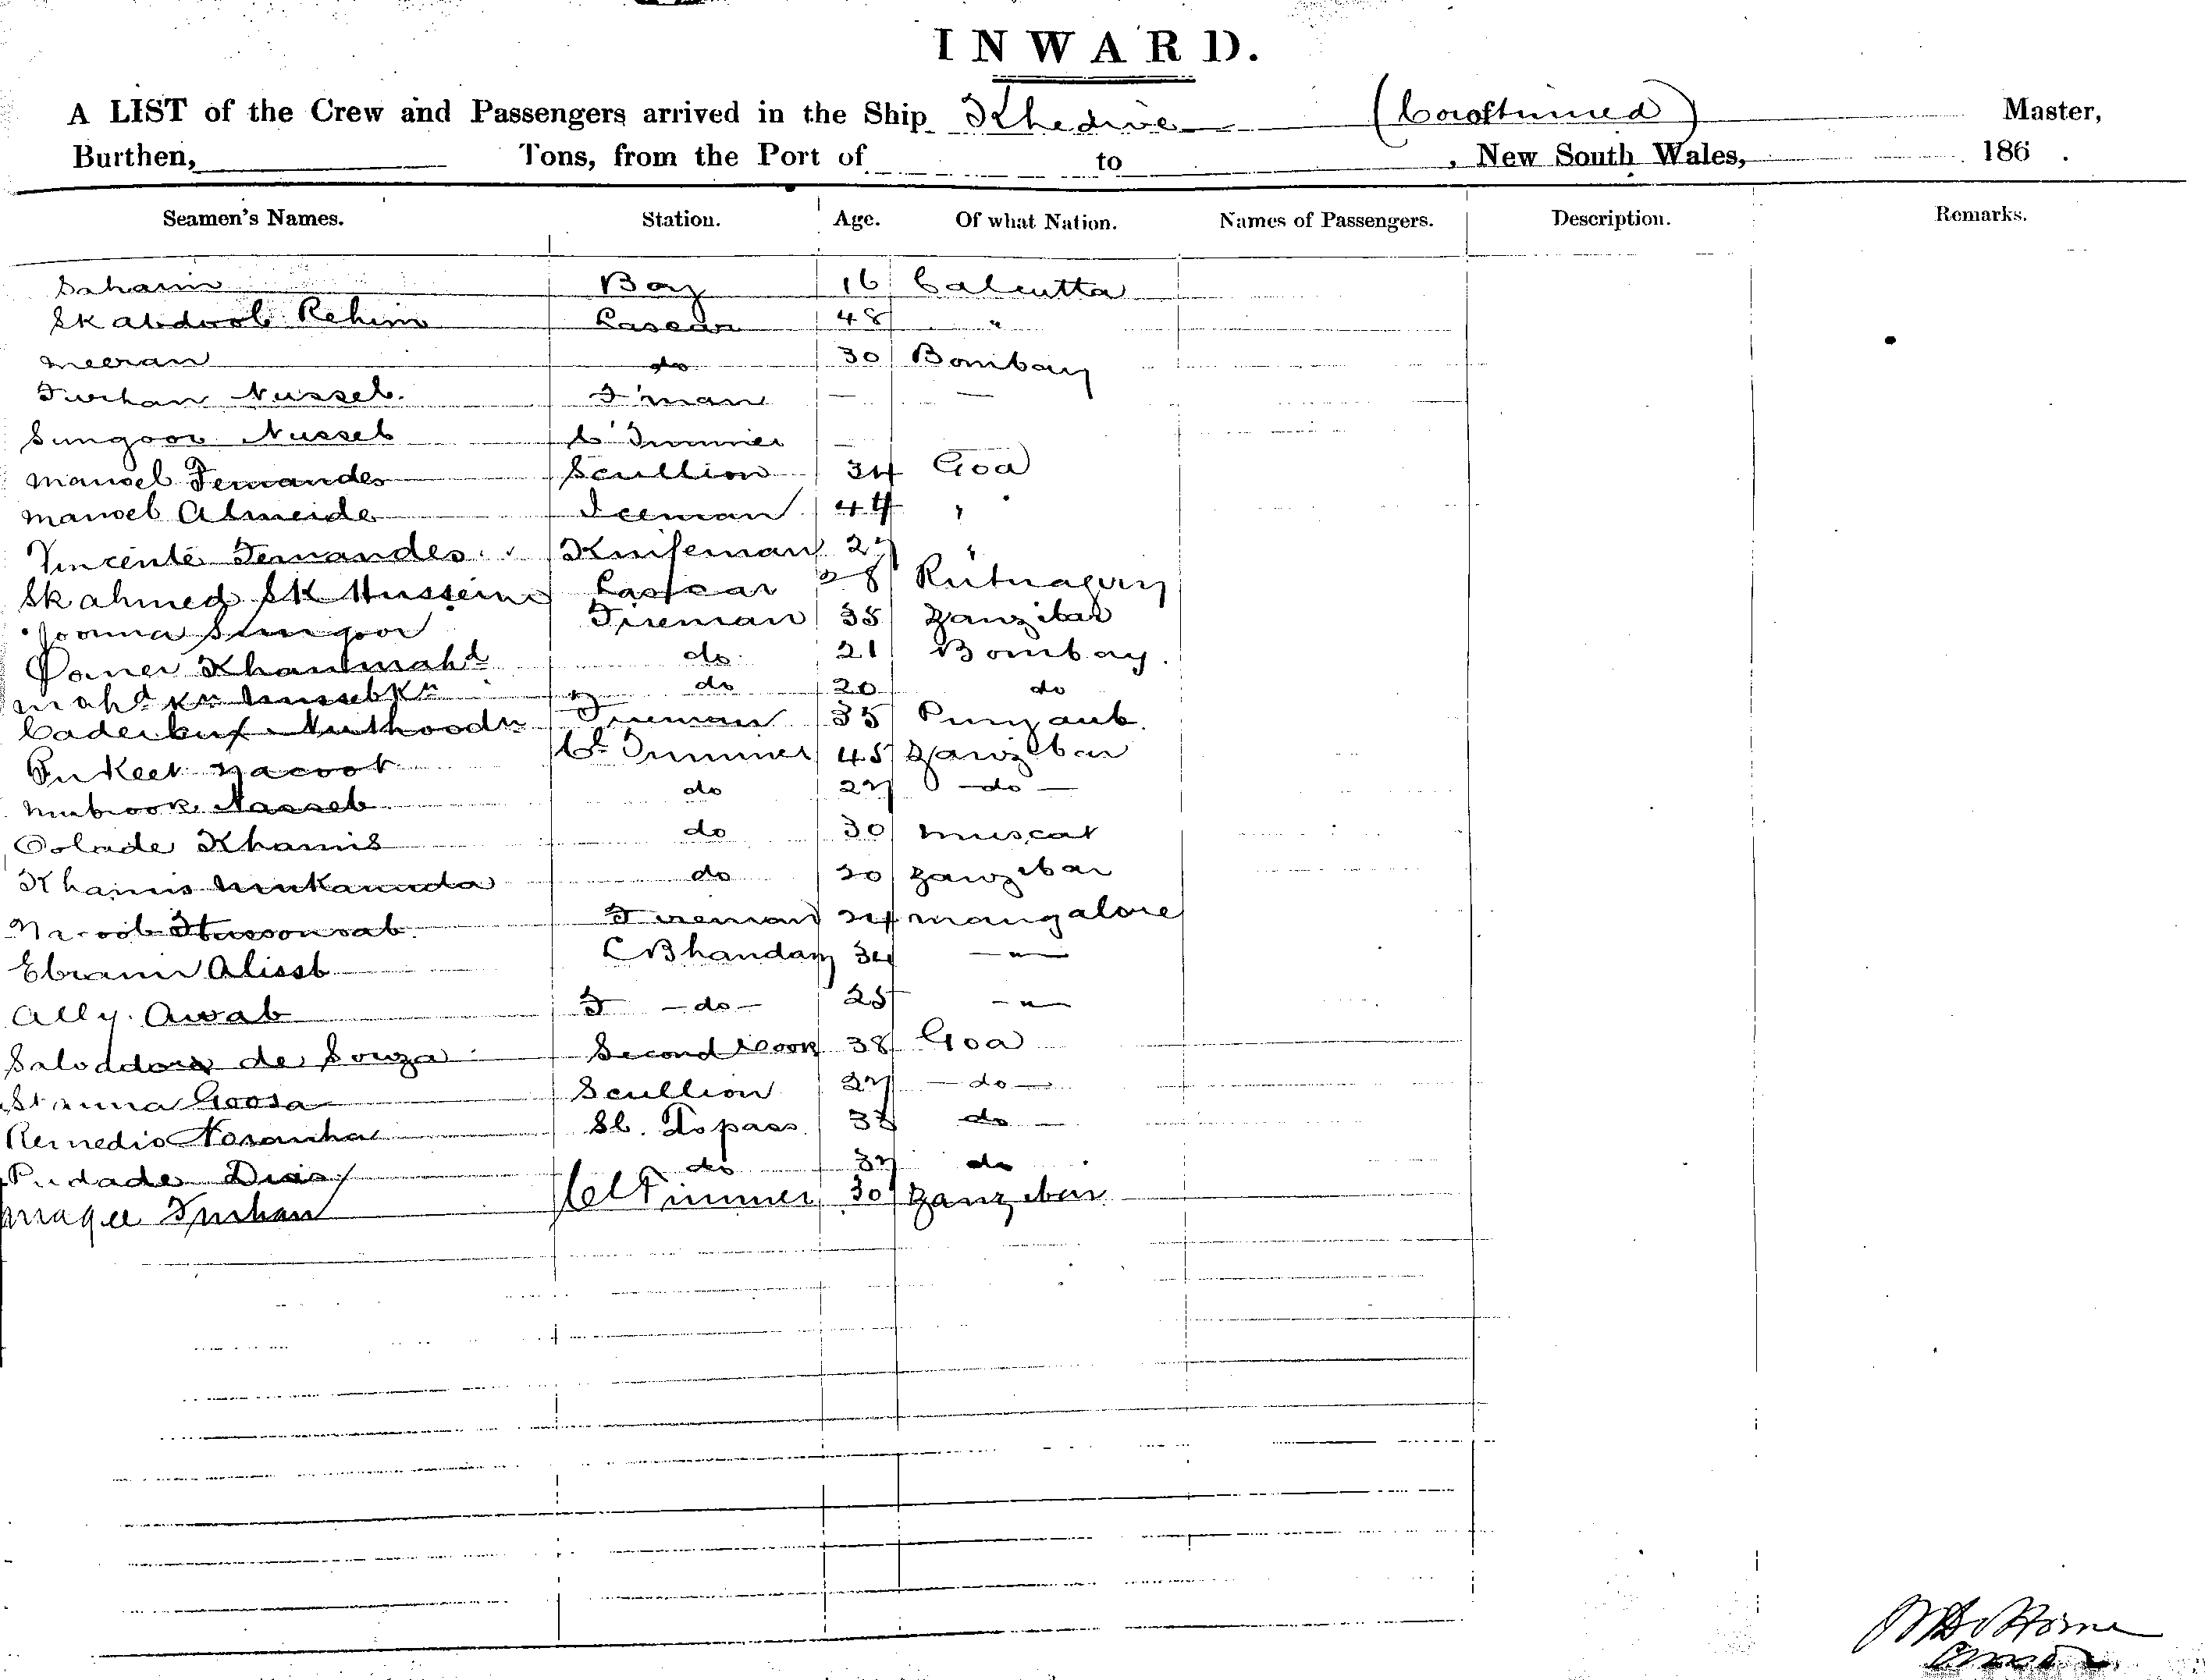 INWARD.
A LIST of the Crew and Passengers arrived in the Ship Khedive (Continued) Master,
Burthen, Tons, from the Port of to , New South Wales, 186 .
Seamen's Names. Station. Age. Of what Nation. Names of Passengers. Description. Remarks.
Boy 16 Calcutta
Sk Abdool Rehim Lascar 48 "
Meeran do 30 Bombay
Furhan Nusseb F'man — —
Sungoor Nusseb C Trimmer —
Manoel Fernandes Scullion 34 Goa
Manoel Almeida Iceman 44 "
Vincente Fernandes Knifeman 27 "
Sk Ahmed Sk Hussein Lascar 28 Rutnagery
Jooma Sungoor Fireman 35 Zanzibar
Khanmahd do 21 Bombay.
Mahd Kn do 20 do
Fireman 35 Punjaub.
Cl Trimmer 45 Zanzibar
Mubrook Nasseb do 27 — do —
Khamis do 30 Muscat
Khamis do 20 Zanzibar
Fireman 24 Mangalore
Ebram C Bhandary 34 — " —
Ally Awab F — do — 25 — " —
Salvadora de Souza Second Cook 38 Goa
Scullion 27 — do —
Remedio Noronha Sl. Topass 38 do —
Dias do 37 do
Furhan Cl Trimmer 30 Zanzibar